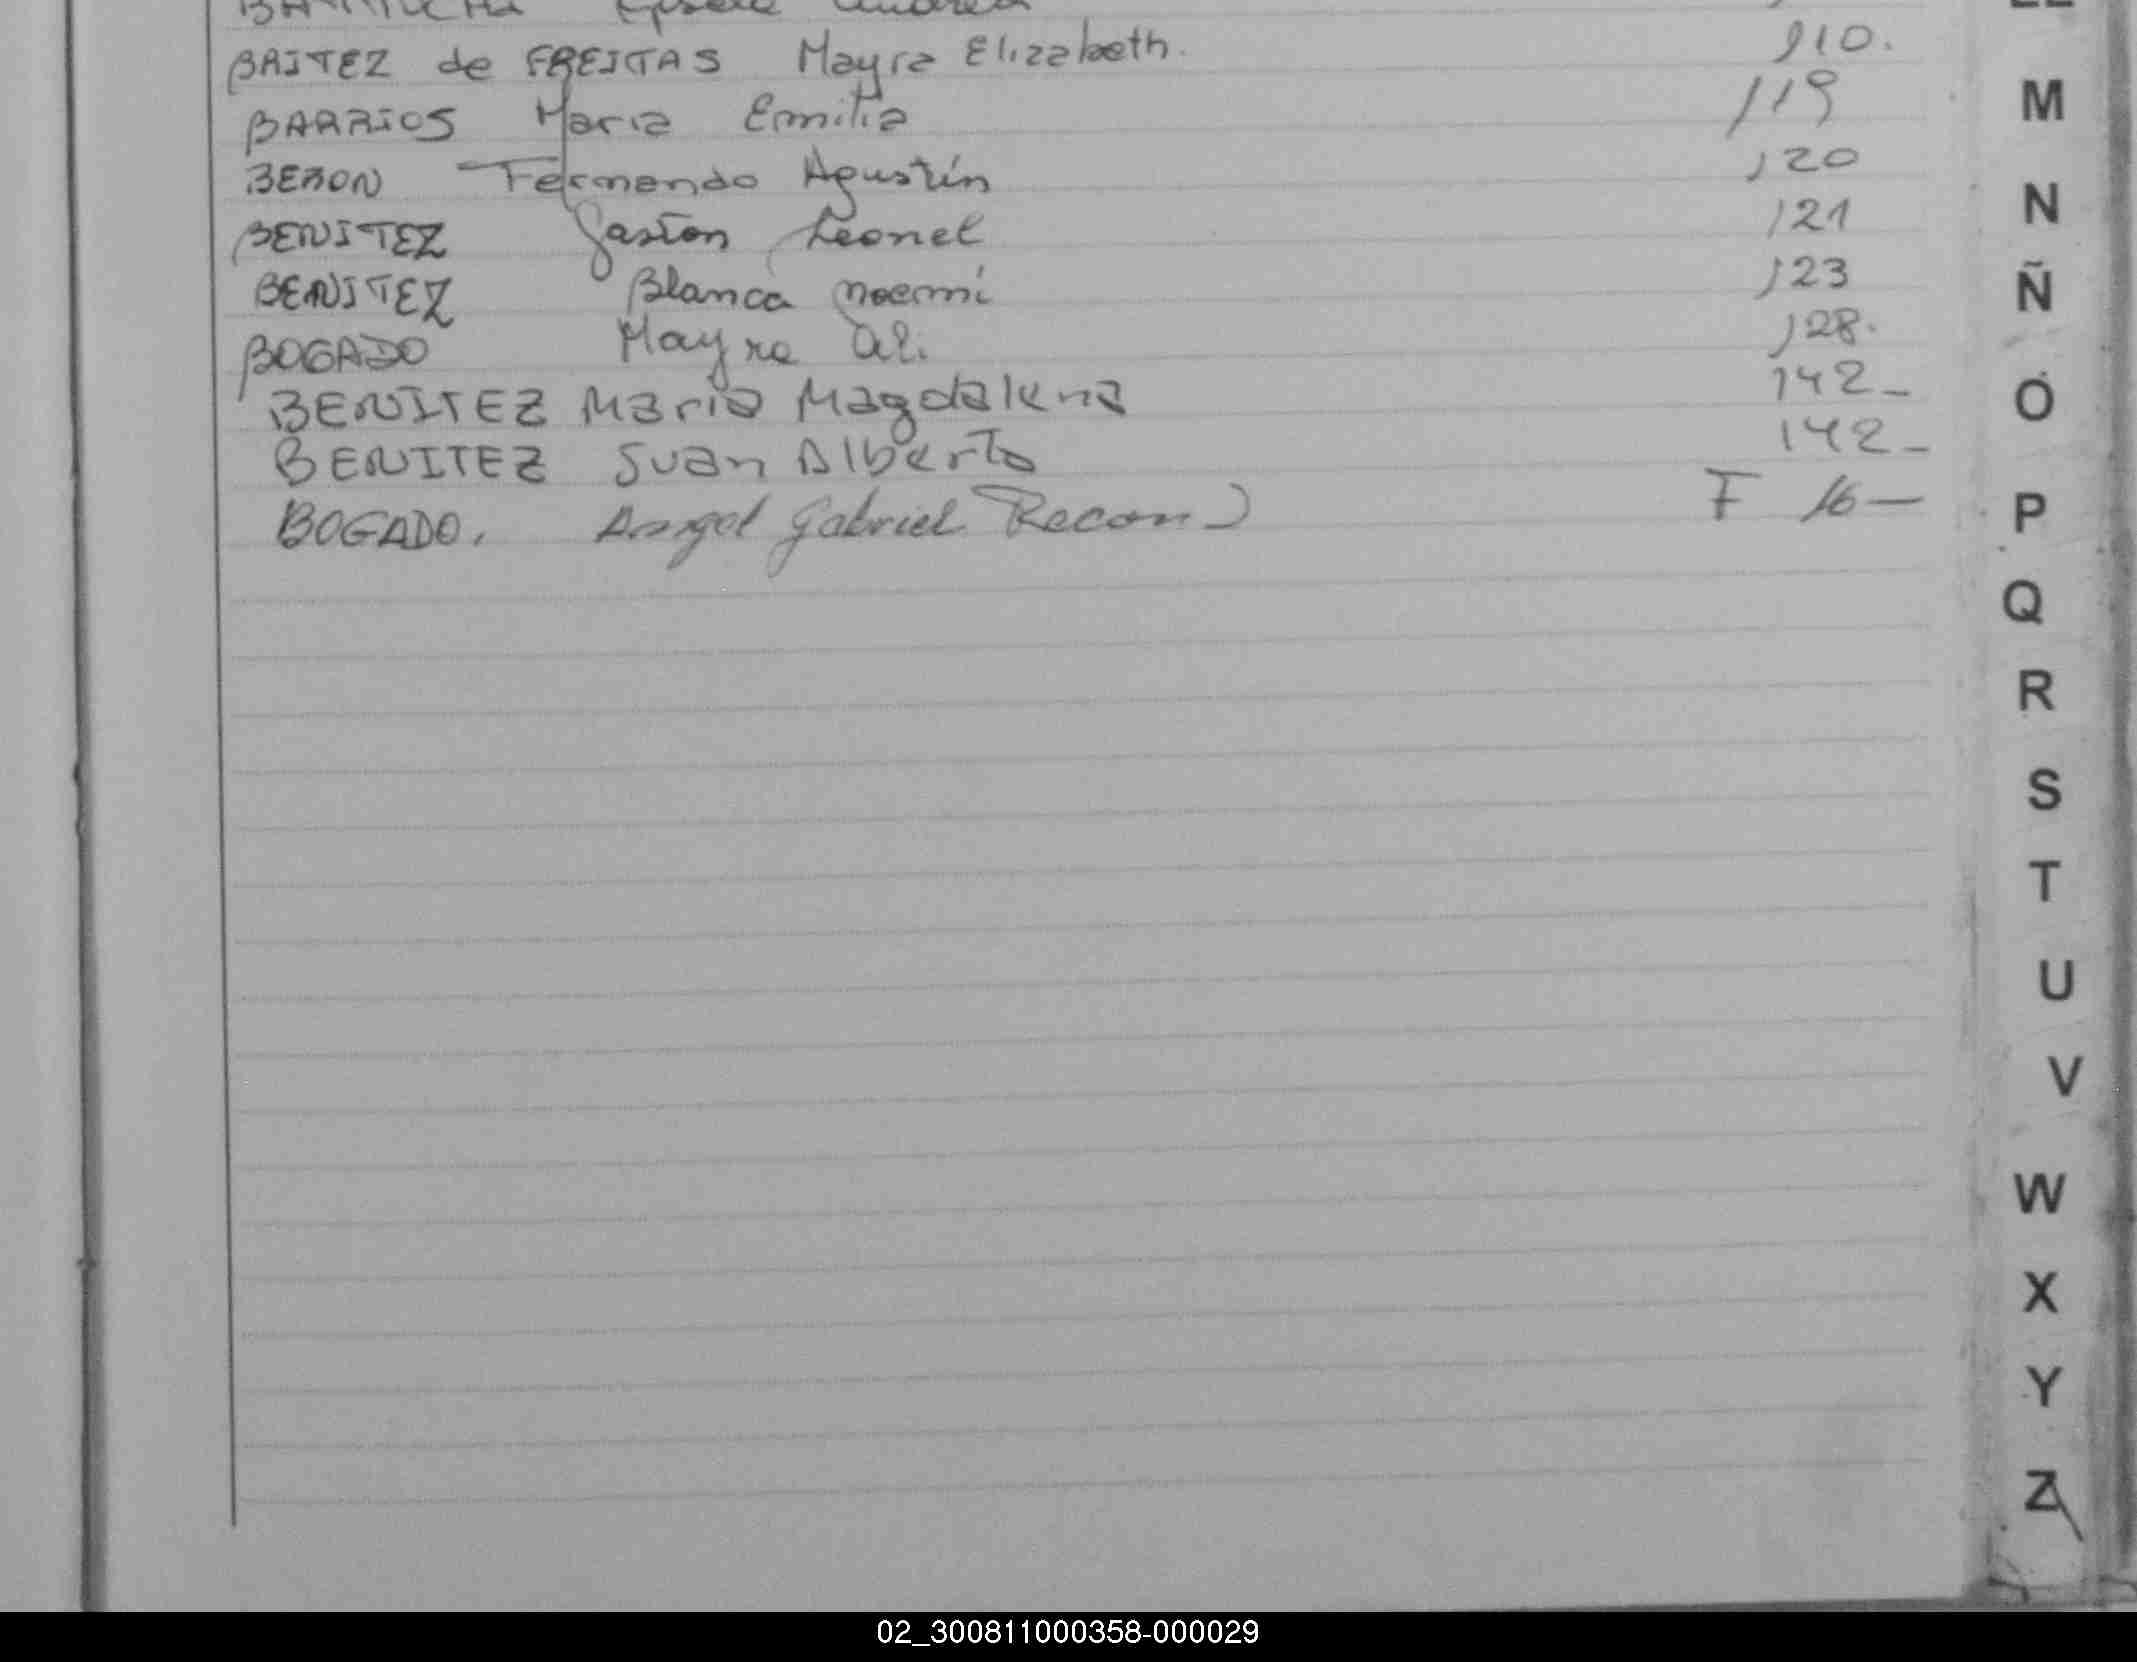 BAITEZ de FREITAS Mayra Elizabeth. 110.
BARRIOS Maria Emilia 119
BERON Fernando Agustín 120
BENITEZ Gaston Leonel 121
BENITEZ Blanca Noemí 123
BOGADO Mayra Al. 128.
BENITEZ Maria Magdalena 142-
BENITEZ Juan Alberto 142-
BOGADO. Angel Gabriel Recon) F 16-
M
N
Ñ
O
P
Q
R
S
T
U
V
W
X
Y
Z
02_300811000358-000029